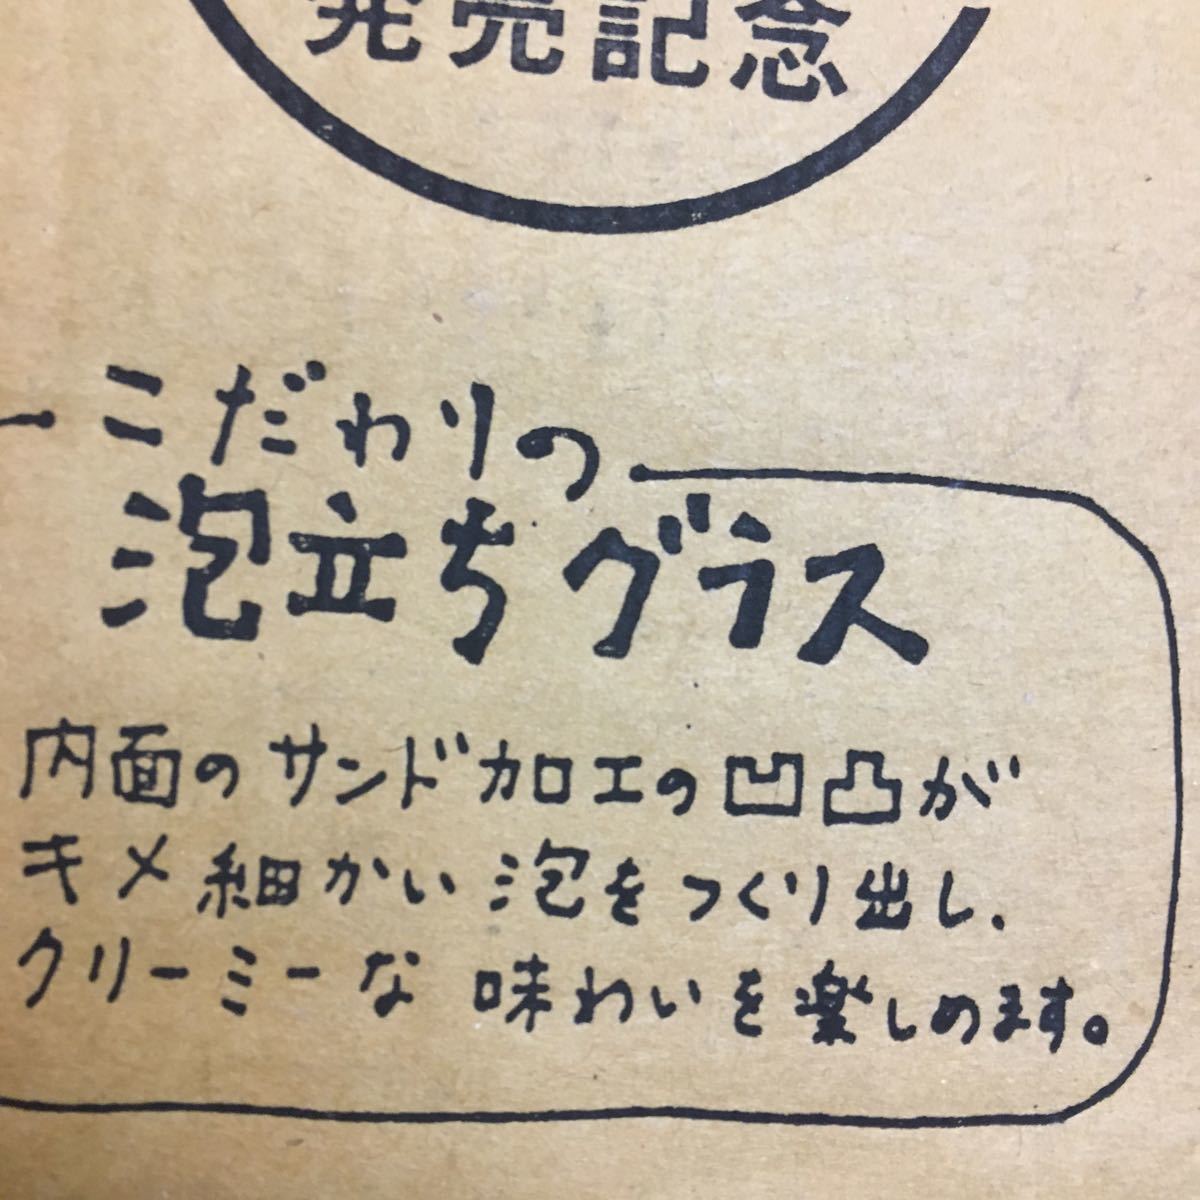 発売記念
こだわりの
泡立ちグラス
内面のサンド加工の凹凸が
キメ細かい泡をつくり出し、
クリーミーな味わいを楽しめます。